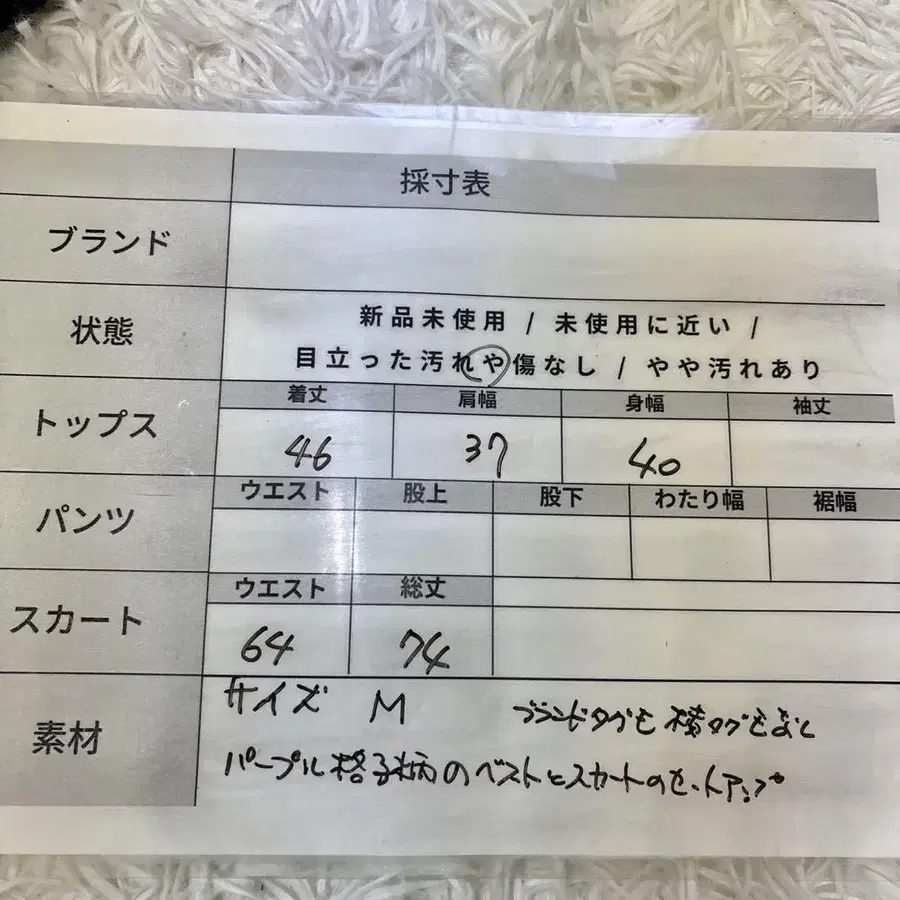 採寸表
ブランド
状態
新品未使用 / 未使用に近い /
目立った汚れや傷なし / やや汚れあり
トップス
着丈 肩幅 身幅 袖丈
46 37 40
パンツ
ウエスト 股上 股下 わたり幅 裾幅
スカート
ウエスト 総丈
64 74
素材
サイズ M ブランドタグも 横タグもなし
パープル格子柄のベストとスカートのセットアップ